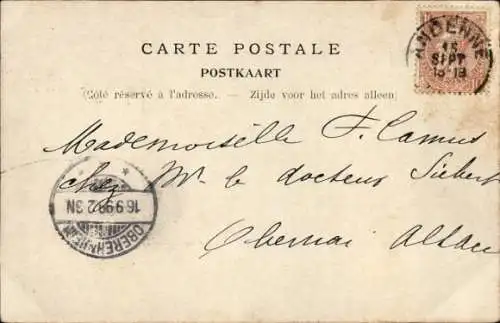 CARTE POSTALE
POSTKAART
(Côté réservé à l'adresse. — Zijde voor het adres alleen)
ANDENNE
15
SEPT
18-19
Mademoiselle F. Camus
chez Mr le docteur Siebert
Obernai Alsace
OBEREHNHEIM
16.9.99.2-3N